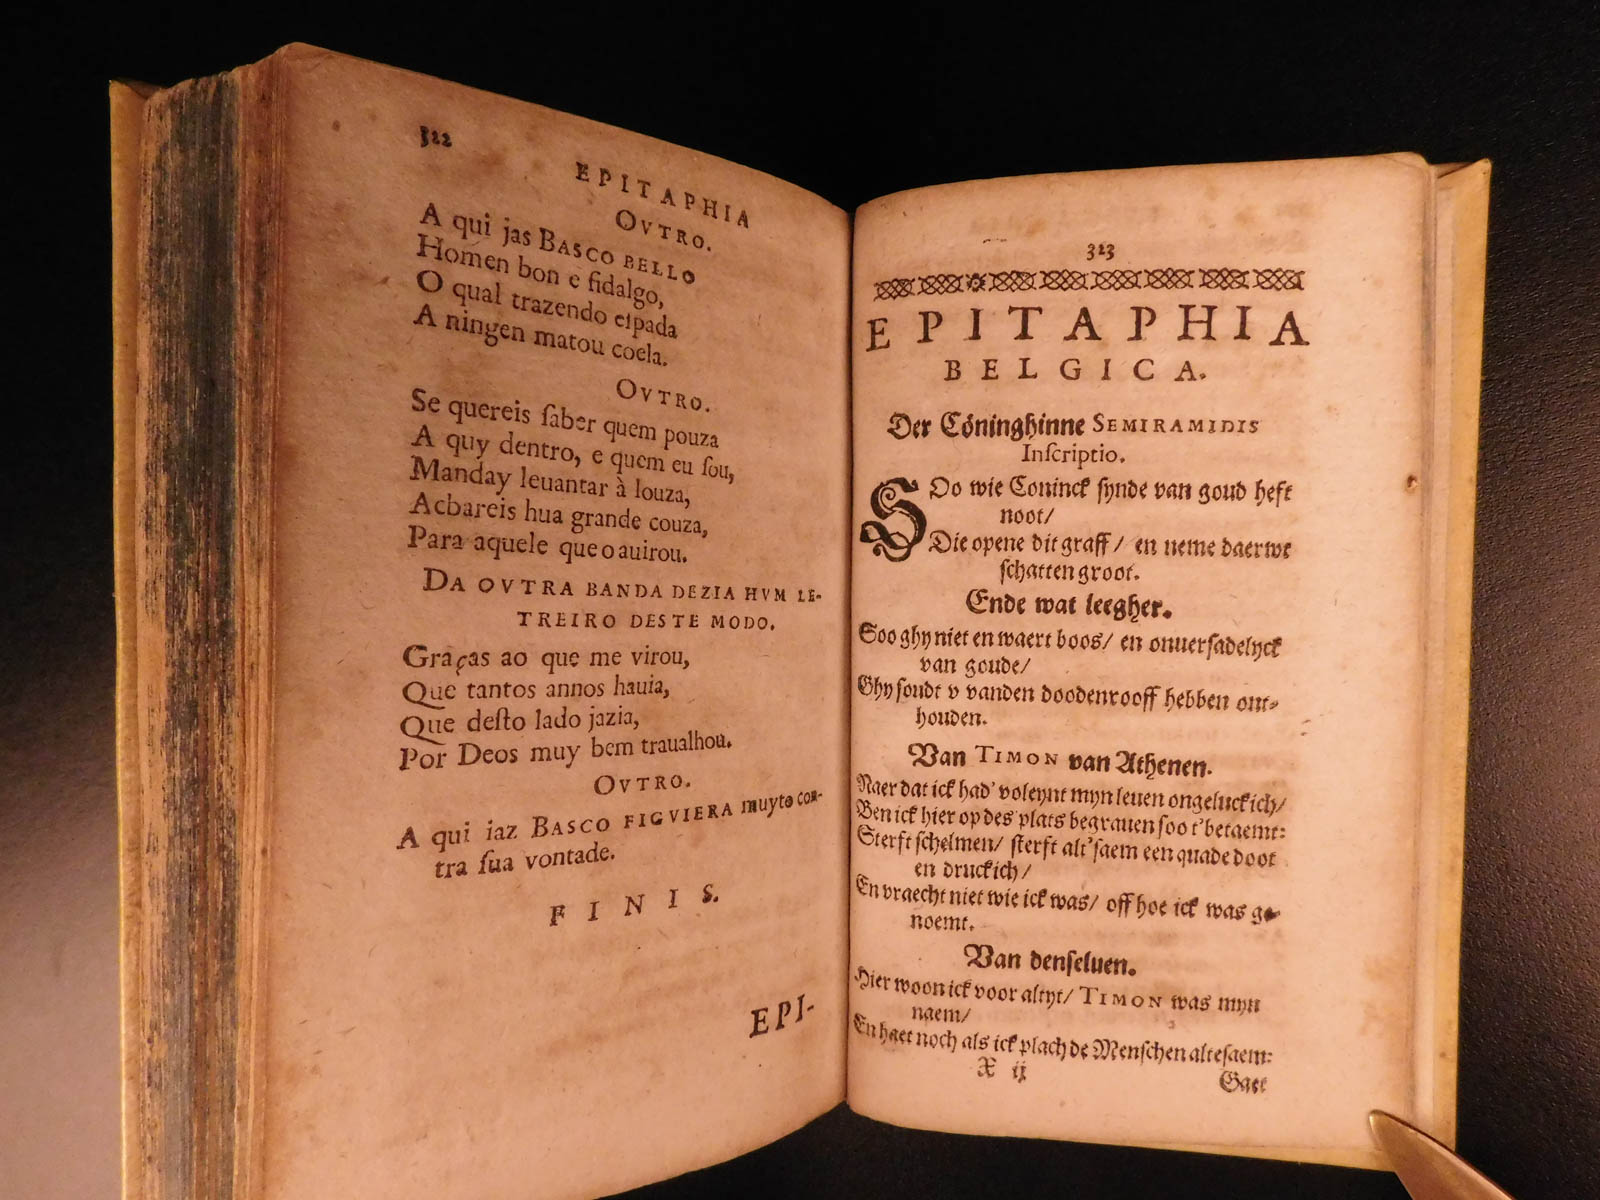 322
EPITAPHIA
OVTRO.
A qui jas BASCO BELLO
Homen bon e fidalgo,
O qual trazendo eſpada
A ningen matou coela.
OVTRO.
Se quereis ſaber quem pouza
A quy dentro, e quem eu ſou,
Manday leuantar à louza,
Acbareis hua grande couza,
Para aquele que o auirou.
DA OVTRA BANDA DEZIA HVM LE-
TREIRO DESTE MODO.
Graças ao que me virou,
Que tantos annos hauia,
Que deſto lado jazia,
Por Deos muy bem traualhou.
OVTRO.
A qui iaz BASCO FIGVIERA muyto con-
tra ſua vontade.
FINIS.
EPI-
323
EPITAPHIA
BELGICA.
Der Cóninghinne SEMIRAMIDIS
Inſcriptio.
SOo wie Coninck ſynde van goud heft
noot/
Die opene dit graff/ en neme daer we
ſchatten groot.
Ende wat leegher.
Soo ghy niet en waert boos/ en onuerſadelyck
van goude/
Ghy ſoudt v vanden doodenrooff hebben ont-
houden.
Van TIMON van Athenen.
Naer dat ick had' voleynt myn leuen ongeluckich/
Ben ick hier op des plats begrauen ſoo t'betaemt:
Sterft ſchelmen/ ſterft alt'ſaem een quade doot
en druckich/
En vraecht niet wie ick was/ off hoe ick was ge-
noemt.
Van denſeluen.
Hier woon ick voor altyt/ TIMON was myn
naem/
En haet noch als ick plach de Menſchen alteſaem:
X ij
Gaet